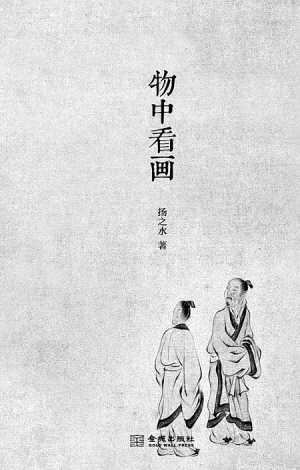 物中看画
扬之水 著
金城出版社
GOLD WALL PRESS